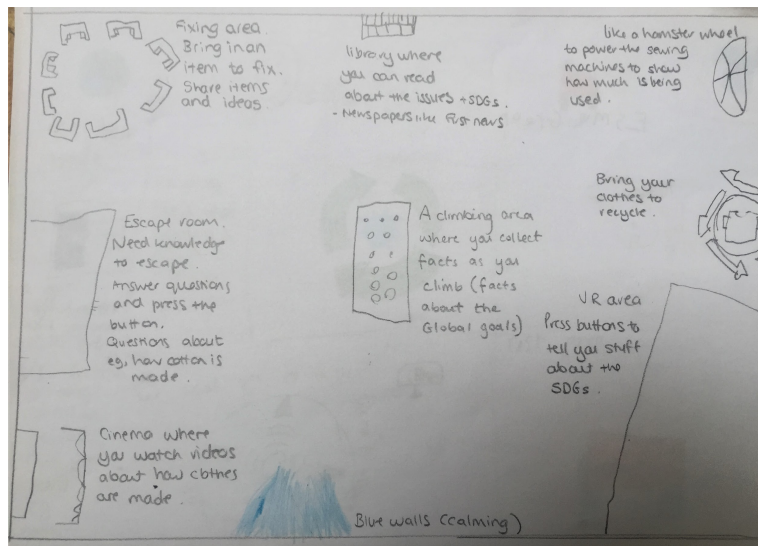 Fixing area.
Bring in an
item to fix.
Share items
and ideas.
library where
you can read
about the issues + SDGs.
- Newspapers like First news
like a hamster wheel
to power the sewing
machines to show
how much is being
used.
Bring your
clothes to
recycle.
Escape room.
Need knowledge
to escape.
Answer questions
and press the
button.
Questions about
eg, how cotton is
made.
A climbing area
where you collect
facts as you
climb (facts
about the
Global goals)
VR area
Press buttons to
tell you stuff
about the
SDGs.
Cinema where
you watch videos
about how clothes
are made.
Blue walls (calming)